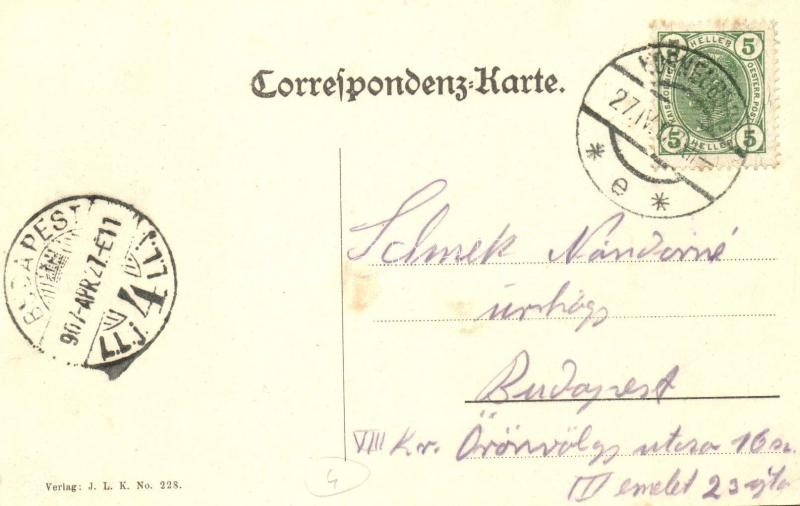 Correspondenz-Karte.
5 HELLER 5
OESTERR. POST
5 HELLER 5
27.IV
* e *
BUDAPEST
907 APR 27-E11
4
Schmek Nándorné
úrhölgy
Budapest
VIII Kr. Örömvölgy utcza 16 sz.
IV emelet 23 ajtó
4
Verlag: J. L. K. No. 228.